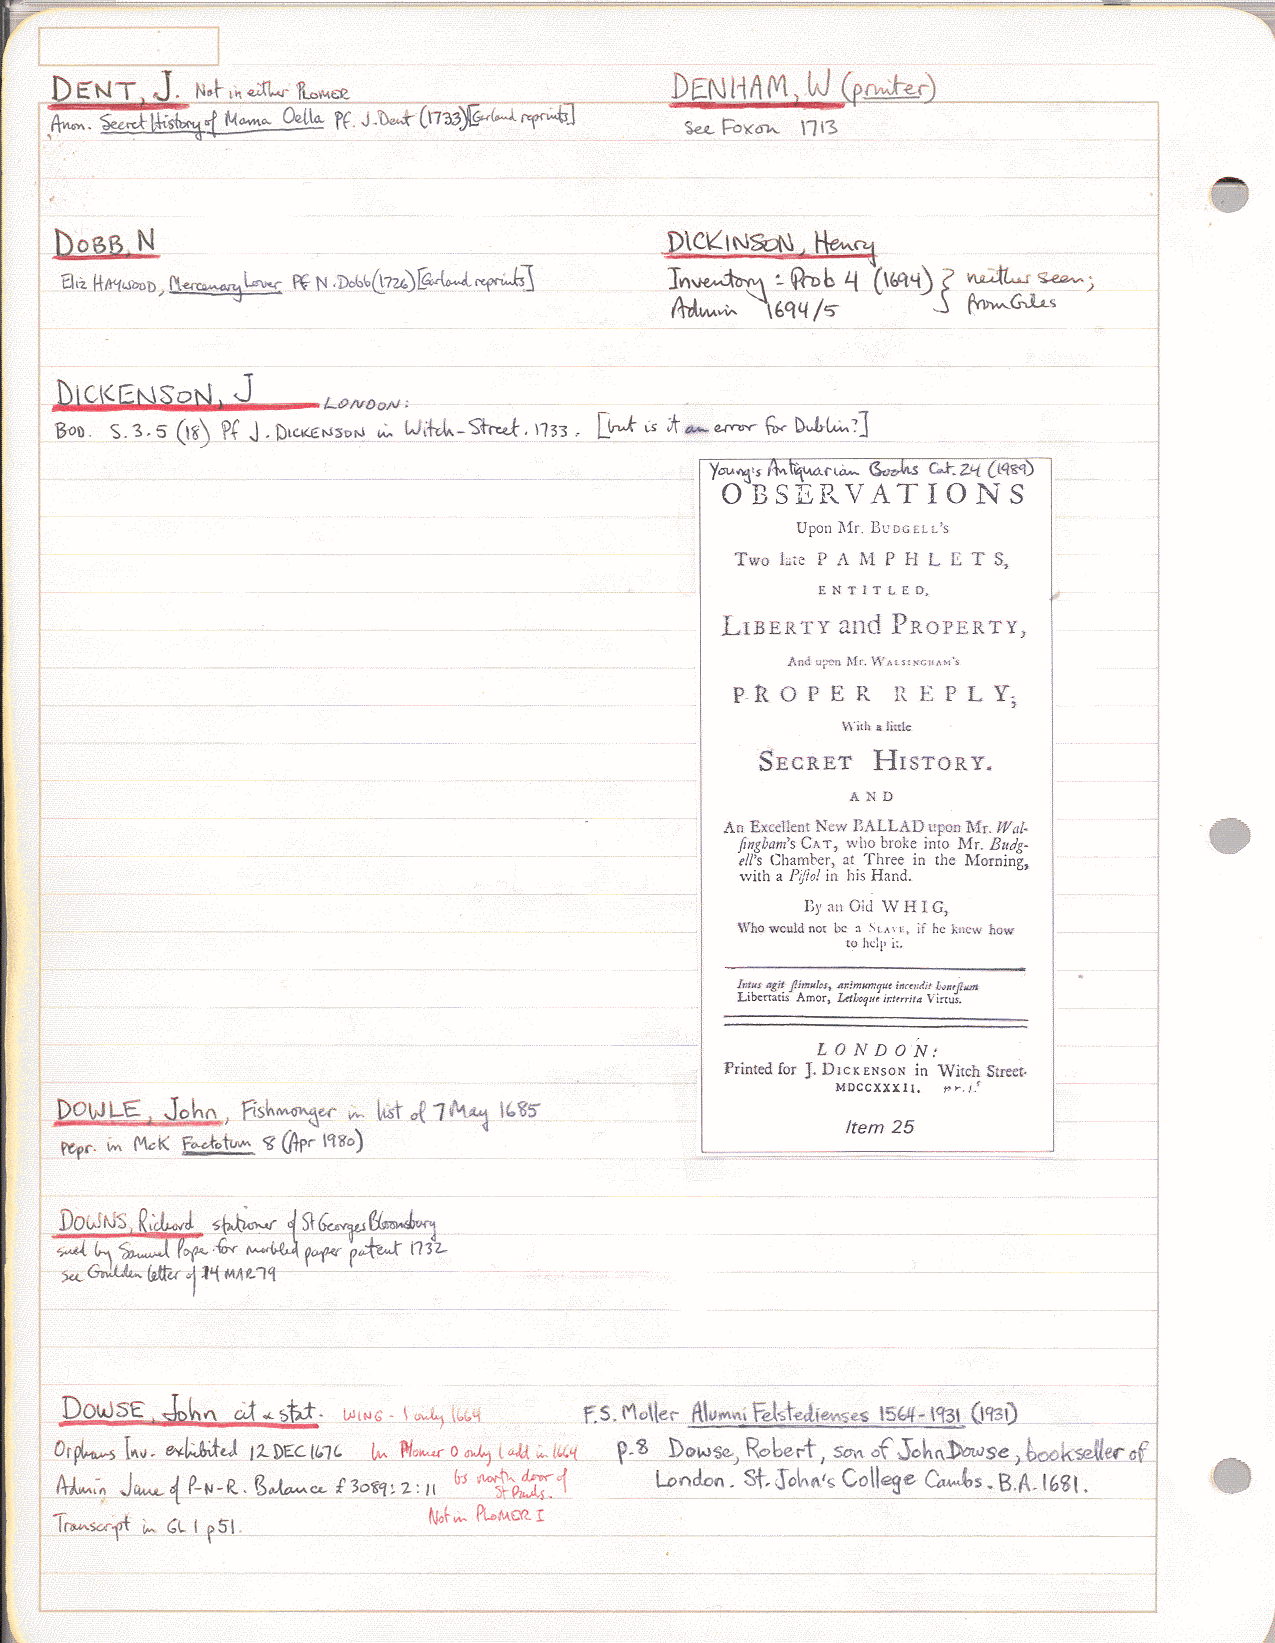 DENT, J. Not in either PLOMER
Anon. Secret History of Mama Oella Pf. J. Dent (1733) [Garland reprints]
DENHAM, W (printer)
See Foxon 1713
DOBB, N
Eliz HAYWOOD, Mercenary Lover Pf N. Dobb (1726) [Garland reprints]
DICKINSON, Henry
Inventory : Prob 4 (1694) } neither seen;
Admin 1694/5 } from Giles
DICKENSON, J LONDON:
BOD. S.3.5 (18) Pf J. DICKENSON in Witch-Street. 1733. [but is it an error for Dublin?]
Young's Antiquarian Books Cat. 24 (1989)
OBSERVATIONS
Upon Mr. BUDGELL's
Two late PAMPHLETS,
ENTITLED,
LIBERTY and PROPERTY,
And upon Mr. WALSINGHAM's
PROPER REPLY;
With a little
SECRET HISTORY.
AND
An Excellent New BALLAD upon Mr. Wal-
singham's CAT, who broke into Mr. Budg-
ell's Chamber, at Three in the Morning,
with a Pistol in his Hand.
By an Old WHIG,
Who would not be a SLAVE, if he knew how
to help it.
Intus agit stimulos, animumque incendit honestum
Libertatis Amor, Lethoque interrita Virtus.
LONDON:
Printed for J. DICKENSON in Witch Street.
MDCCXXXII. pr. 1.s
Item 25
DOWLE, John, Fishmonger in list of 7 May 1685
repr. in McK Factotum 8 (Apr 1980)
DOWNS, Richard stationer of St Georges Bloomsbury
sued by Samuel Pope for marbled paper patent 1732
see Goulden letter of 14 MAR 79
DOWSE, John cit & stat. WING - 1 only 1664
Orphans Inv. exhibited 12 DEC 1676 In Plomer 0 only (add in 1664
Admin Jane of P-N-R. Balance £3089:2:11 Gs north door of
St Pauls.
Transcript in GL 1 p51. Not in PLOMER I
F.S. Moller Alumni Felstedienses 1564-1931 (1931)
p.8 Dowse, Robert, son of John Dowse, bookseller of
London. St. John's College Cambs. B.A. 1681.